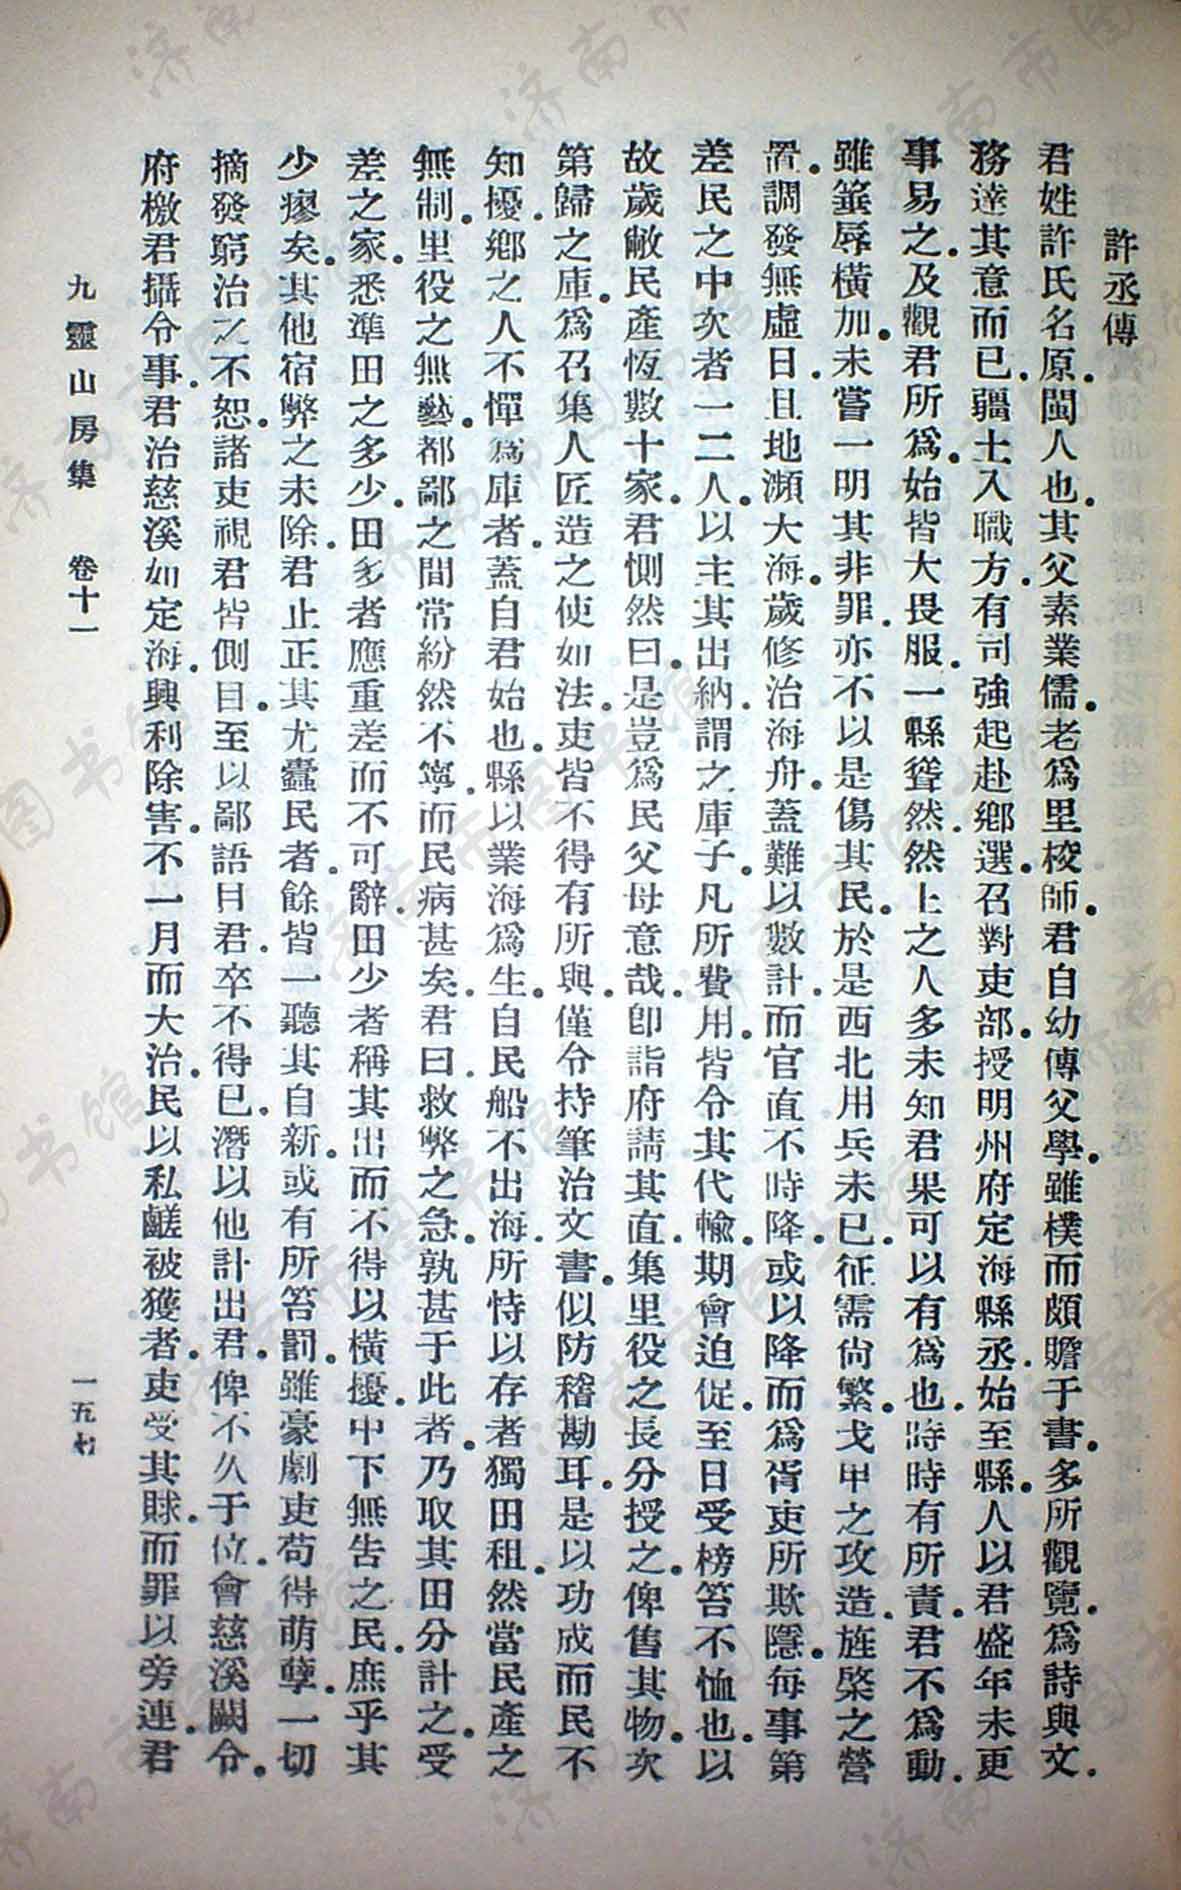 許丞傳
君姓許氏名原閩人也其父素業儒老爲里校師君自幼傳父學雖樸而頗贍于書多所觀覽爲詩與文
務達其意而已疆土入職方有司強起赴鄉選召對吏部授明州府定海縣丞始至縣人以君盛年未更
事易之及觀君所爲始皆大畏服一縣聳然然上之人多未知君果可以有爲也時時有所責君不爲動
雖箠辱橫加未嘗一明其非罪亦不以是傷其民於是西北用兵未已征需尙繁戈甲之攻造旌棨之營
置調發無虛日且地瀕大海歲修治海舟蓋難以數計而官直不時降或以降而爲胥吏所欺隱每事第
差民之中次者一二人以主其出納謂之庫子凡所費用皆令其代輸期會迫促至日受榜笞不恤也以
故歲敝民產恆數十家君惻然曰是豈爲民父母意哉卽詣府請其直集里役之長分授之俾售其物次
第歸之庫爲召集人匠造之使如法吏皆不得有所與僅令持筆治文書似防稽勘耳是以功成而民不
知擾鄉之人不憚爲庫者蓋自君始也縣以業海爲生自民船不出海所恃以存者獨田租然當民產之
無制里役之無藝都鄙之間常紛然不寧而民病甚矣君曰救弊之急孰甚于此者乃取其田分計之受
差之家悉準田之多少田多者應重差而不可辭田少者稱其出而不得以橫擾中下無告之民庶乎其
少瘳矣其他宿弊之未除君止正其尤蠹民者餘皆一聽其自新或有所笞罰雖豪劇吏苟得萌孽一切
摘發窮治之不恕諸吏視君皆側目至以鄙語目君卒不得已潛以他計出君俾不久于位會慈溪闕令
府檄君攝令事君治慈溪如定海興利除害不一月而大治民以私鹺被獲者吏受其賕而罪以旁連君
九靈山房集 卷十一 一五七